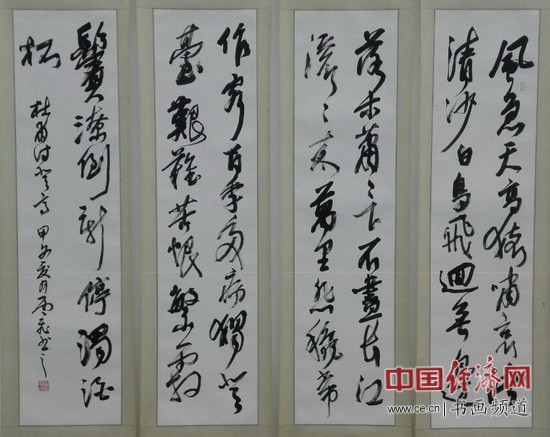 風急天高猿嘯哀渚
清沙白鳥飛迴無邊
落木蕭々下不盡長江
滾々來萬里悲秋常
作客百年多病獨登
臺艱難苦恨繁霜
鬢潦倒新停濁酒
杯
杜甫詩登高 甲午月書之
中国经济网
www.ce.cn 书画频道